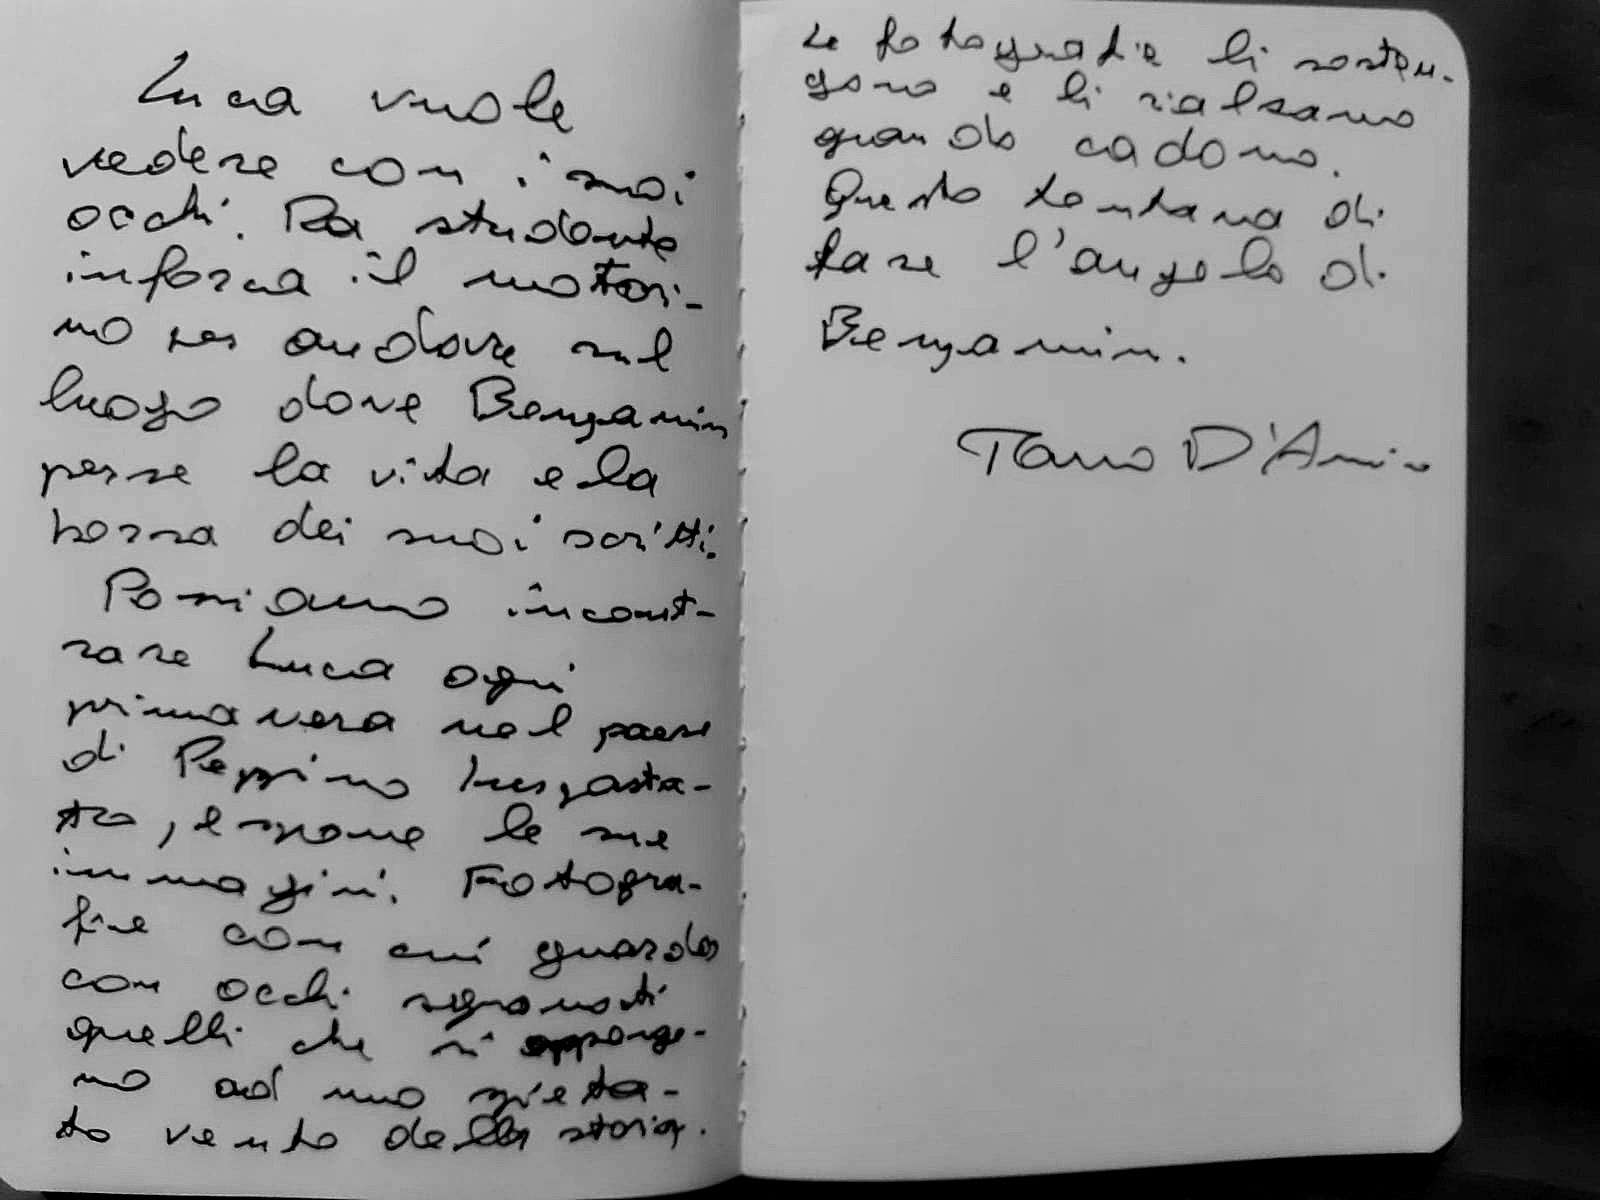 Luca vuole
vedere con i suoi
occhi. Da studente
inforca il motori-
no per andare sul
luogo dove Benjamin
perse la vita e la
borsa dei suoi scritti.
Possiamo incont-
rare Luca ogni
primavera nel paese
di Peppino Impasta-
to, espone le sue
immagini. Fotogra-
fie con cui guarda
con occhi sgranati
quelli che si oppongo-
no ad uno spieta-
to vento della storia.
Le fotografie li sosten-
gono e li rialzano
quando cadono.
Questo tentava di
fare l'angelo di
Benjamin.
Tano D'Amico